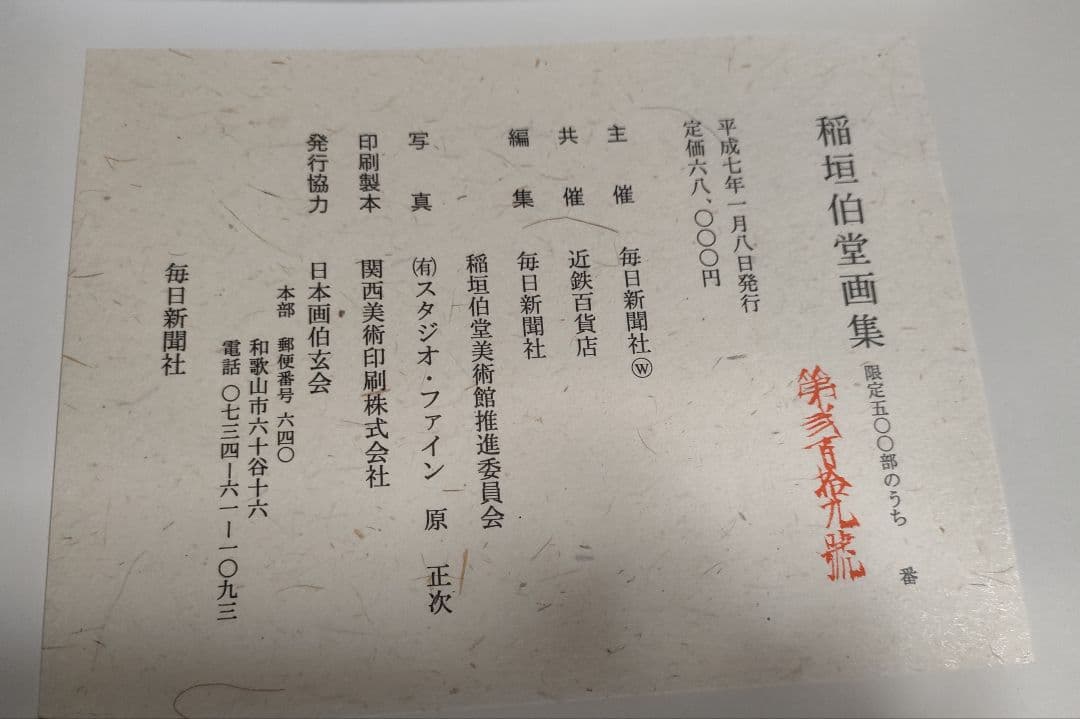 稲垣伯堂画集
限定五〇〇部のうち　番
第弐百拾九號
平成七年一月八日発行
定価六八、〇〇〇円
主催　毎日新聞社Ⓦ
共催　近鉄百貨店
編集　毎日新聞社
稲垣伯堂美術館推進委員会
写真　㈲スタジオ・ファイン　原　正次
印刷製本　関西美術印刷株式会社
発行協力　日本画伯玄会
本部　郵便番号　六四〇
和歌山市六十谷十六
電話　〇七三四ー六一ー一〇九三
毎日新聞社